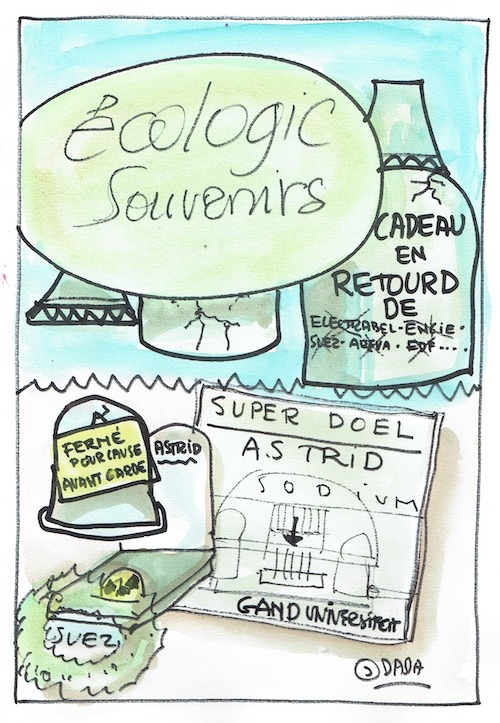 Ecologic
Souvenirs
CADEAU
EN
RETOURD
DE
ELECTRABEL-ENGIE-
SUEZ-AREVA. EDF....
FERMÉ
POUR CAUSE
AVANT GARDE
ASTRID
SUPER DOEL
A.STRID
SODIUM
GAND UNIVERSITEIT
SUEZ
DADA